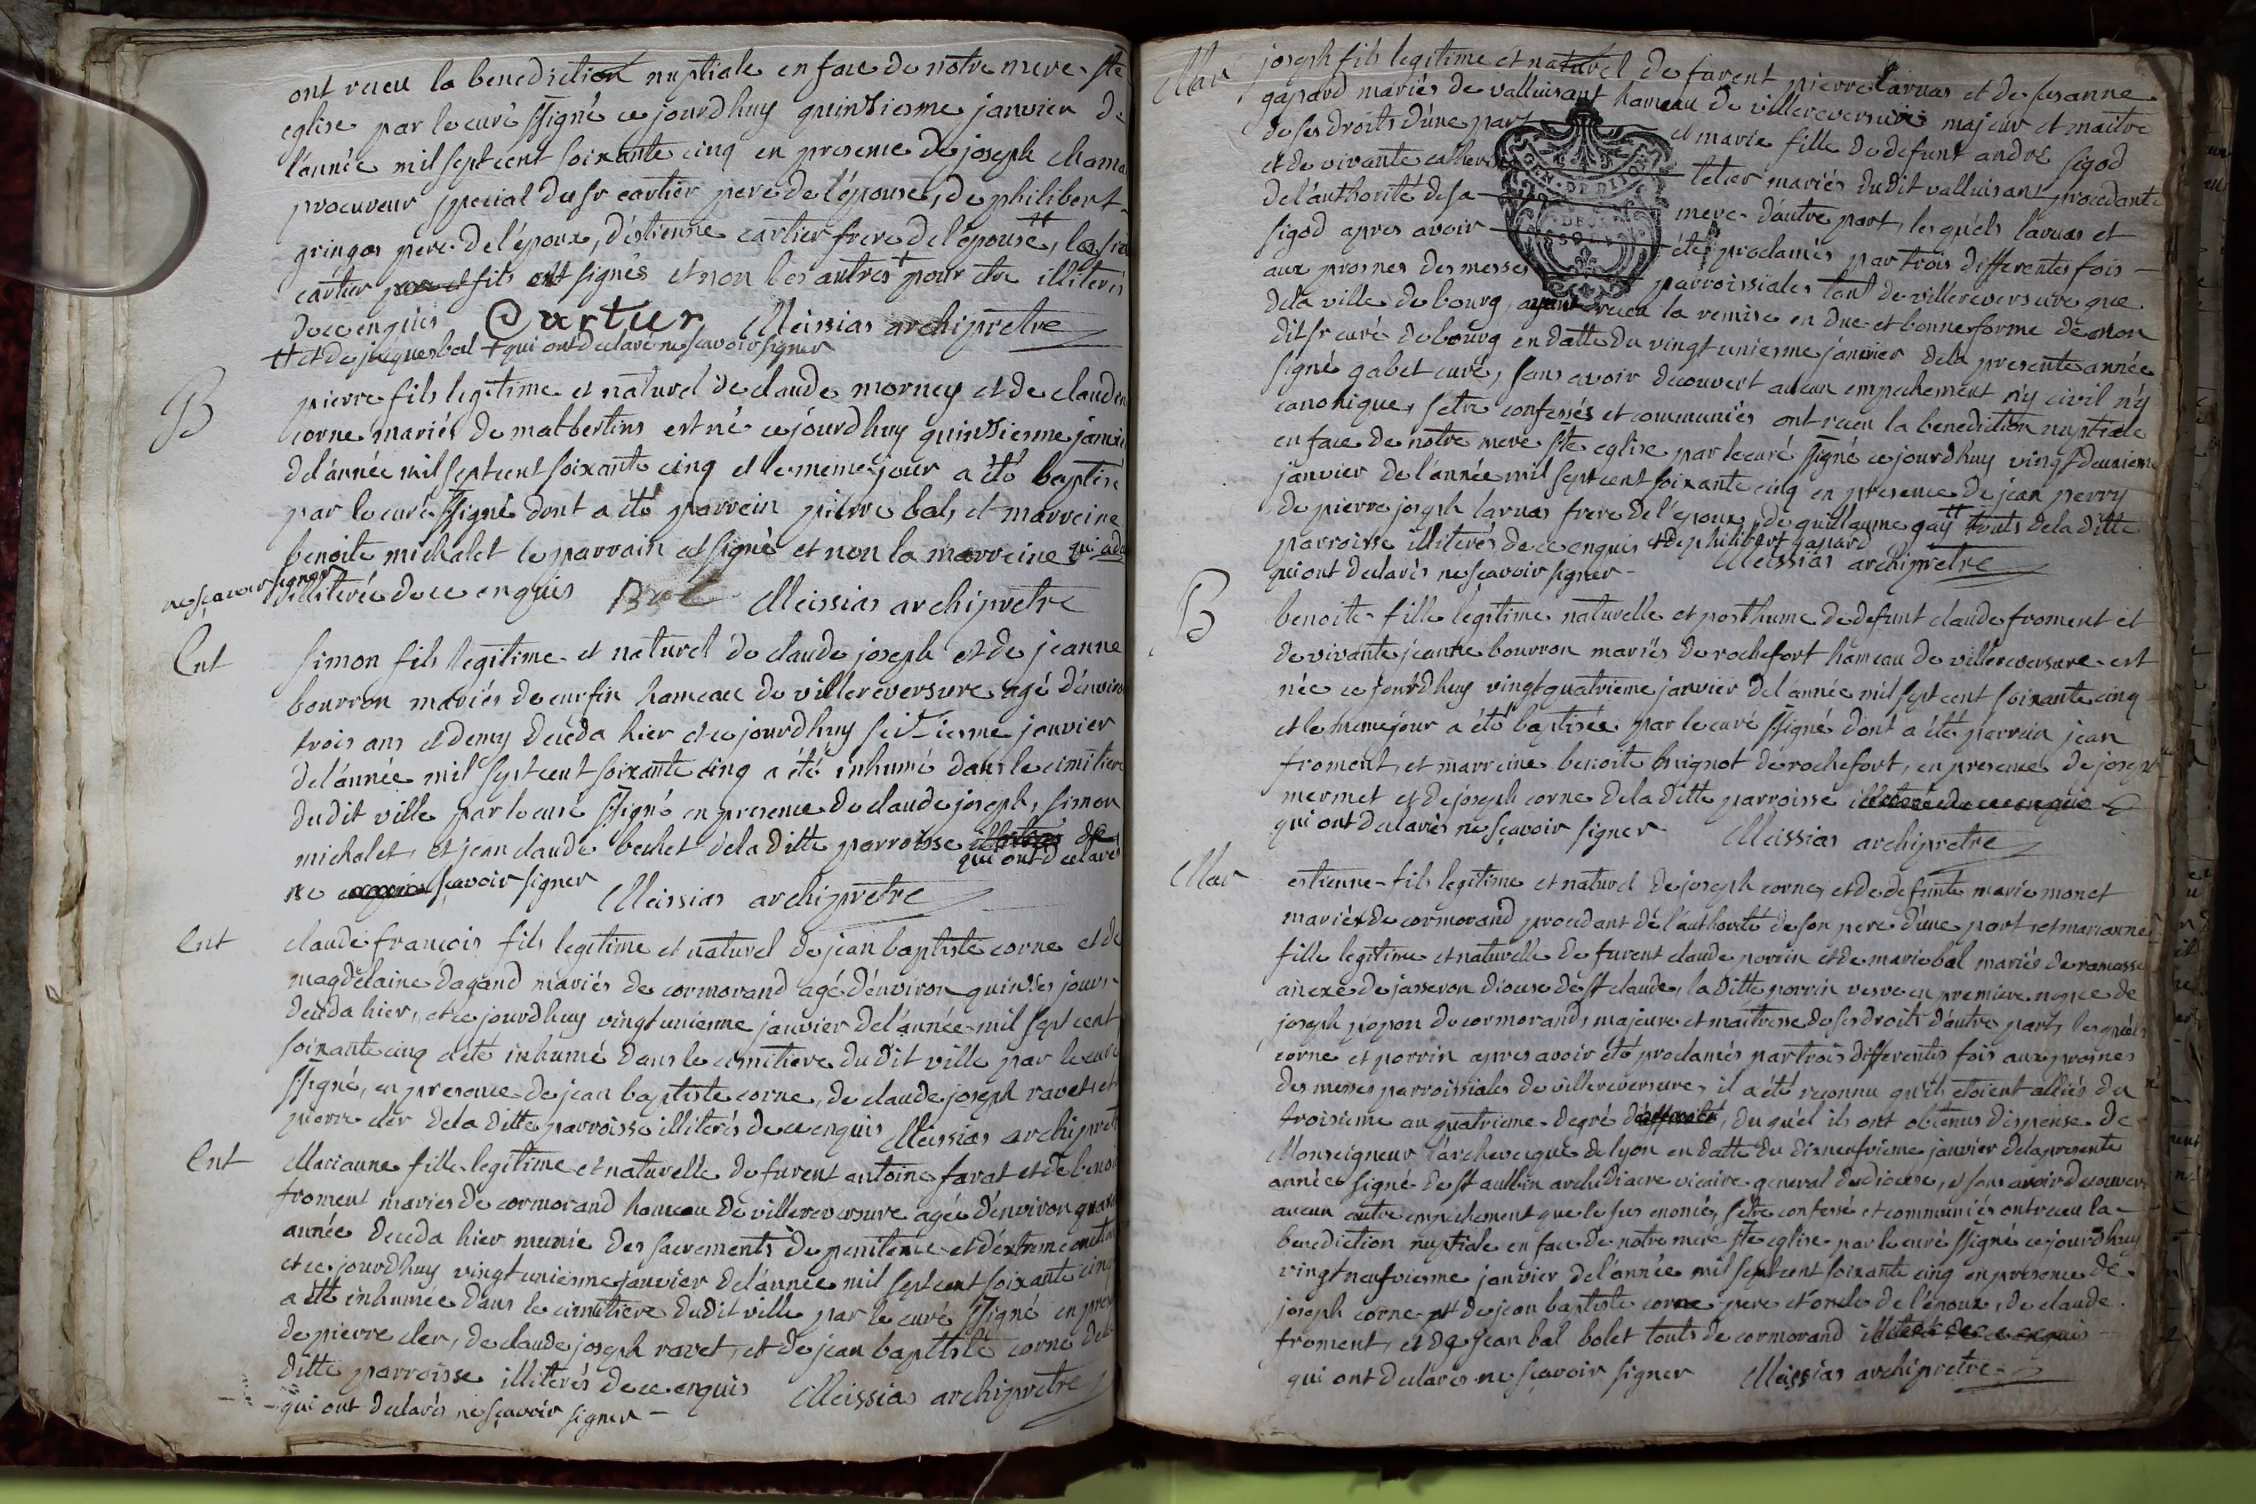 ont receu la benediction nuptiale en face de notre mere ste
eglise par le curé ssigné ce jourdhuy quinsiesme janvier de
l'année mil sept cent soixante cinq en presence de joseph
procureur special du sr cartier pere de l'épouse, de philibert
gringos pere de l'époux, d'estienne cartier frere de l'épouse tt, les
cartier pere et fils ont signés et non les autres + pour etre illiterés
de ce enquis Cartier Meissias archipretre
tt et de jacques bal + qui ont declaré ne scavoir signer
B pierre fils legitime et naturel de claude morney et de
corne mariés de matbertins est né ce jourdhuy quinsiesme
de l'année mil sept cent soixante cinq et le meme jour a été baptisé
par le curé ssigné dont a été parrein pierre bal et marreine
benoite michalet le parrain a signé et non la marreine qui a
ne sçavoir signer
illiterée de ce enquis Bal Meissias archipretre
Ent simon fils legitime et naturel de claude joseph et de jeanne
bourron mariés de curfin hameau de villereversure agé d'environ
trois ans et demy deceda hier et ce jourdhuy seisiesme janvier
de l'année mil sept cent soixante cinq a été inhumé dans le cimitiere
du dit ville par le curé ssigné en presence de claude joseph, simon
michalet, et jean claude bechet de la ditte parroisse illiterés de
qui ont declarés
ne sçavoir signer Meissias archipretre
Ent claude françois fils legitime et naturel de jean baptiste corne et de
magdelaine dagand mariés de cormorand agé d'environ quinses jours
deceda hier, et ce jourdhuy vingt uniesme janvier de l'année mil sept cent
soixante cinq a été inhumé dans le cimitiere du dit ville par le curé
ssigné, en presence de jean baptiste corne, de claude joseph ravet, et
pierre cler de la ditte parroisse illiterés de ce enquis Meissias archipretre
Ent Marianne fille legitime et naturelle de furent antoine favat et de
froment mariés de cormorand hameau de villereversure agée d'environ
année deceda hier munie des sacrements de penitence et d'extreme onction
et ce jourdhuy vingt uniesme janvier de l'année mil sept cent soixante cinq
a été inhumée dans le cimitiere du dit ville par le curé ssigné en
de pierre cler, de claude joseph ravet, et de jean baptiste corne de la
ditte parroisse illiterés de ce enquis Meissias archipretre
qui ont declarés ne sçavoir signer
Mar joseph fils legitime et naturel de furent pierre laruas et de susanne
gapard mariés de valluisant hameau de villereversure majeur et maitre
de ses droits d'une part et marie fille de defunt andré sigod
et de vivante letier mariés du dit valluisant procedante
de l'authorité de sa mere d'autre part, les quels laruas et
sigod apres avoir été proclamés par trois differentes fois
aux prosnes des messes parroissiales tant de villereversure que
de la ville de bourg, ayant receu la remise en due et bonne forme de mon
dit sr curé de bourg en datte du vingt uniesme janvier de la presente année
signé gabet curé, sans avoir decouvert aucun empechement n'y civil n'y
canonique, s'etre confessés et communiés ont receu la benediction nuptiale
en face de notre mere ste eglise par le curé ssigné ce jourdhuy vingt deuxieme
janvier de l'année mil sept cent soixante cinq en presence de jean perry
de pierre joseph laruas frere de l'epoux, de guillaume gay tt touts de la ditte
parroisse illiterés de ce enquis tt de philibert gapard
qui ont declarés ne sçavoir signer Meissias archipretre
B benoite fille legitime naturelle et posthume de defunt claude froment et
de vivante jeanne bourron mariés de rochefort hameau de villereversure est
née ce jourdhuy vingt quatrieme janvier de l'année mil sept cent soixante cinq
et le meme jour a été baptisée par le curé ssigné dont a été parrein jean
froment, et marreine benoite de rochefort, en presence de joseph
mermet et de joseph corne de la ditte parroisse illiterés de ce enquis
qui ont declarés ne sçavoir signer Meissias archipretre
Mar estienne fils legitime et naturel de joseph corne, et de defunte marie monet
mariés de cormorand procedant de l'authorité de son pere d'une part, et marianne
fille legitime et naturelle de furent claude porrin et de marie bal mariés de ramasse
anexe de jasseron diocese de st claude, la ditte porrin vesve en premiere nopce de
joseph piopon de cormorand, majeure et maitresse de ses droits d'autre part, les quels
corne et porrin apres avoir été proclamés par trois differentes fois aux prosnes
des messes parroissiales de villereversure, il a été reconnu qu'ils etoient alliés du
troisieme au quatrieme degré, du quel ils ont obtenus dispense de
Monseigneur l'archeveque de lyon en datte du disneufvieme janvier de la presente
année signé de st aulbin archediacre vicaire general du diocese, et sans avoir decouvert
aucun autre empechement que le sus enoncé, s'etre confessé et communiés ont receu la
benediction nuptiale en face de notre mere ste eglise par le curé ssigné ce jourdhuy
vingt neufviesme janvier de l'année mil sept cent soixante cinq en presence de
joseph corne et de jean baptiste corne pere et oncle de l'époux, de claude
froment, et de jean bal bolet touts de cormorand illiterés de ce enquis
qui ont declarés ne sçavoir signer Meissias archipretre